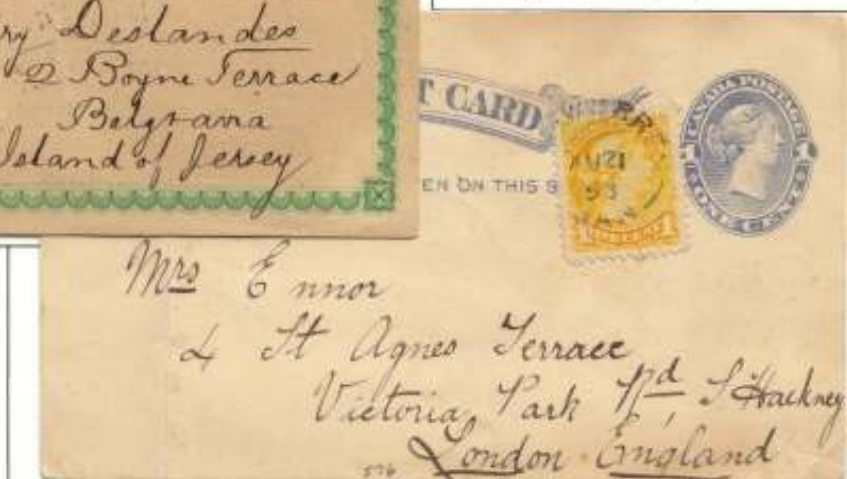 ry Deslandes
2 Boyne Terrace
Belgravia
Island of Jersey
T CARD
CANADA POSTAGE
ONE CENT
EN ON THIS S
Mrs Ennor
4 St Agnes Terrace
Victoria Park Rd, S Hackney
London England
576